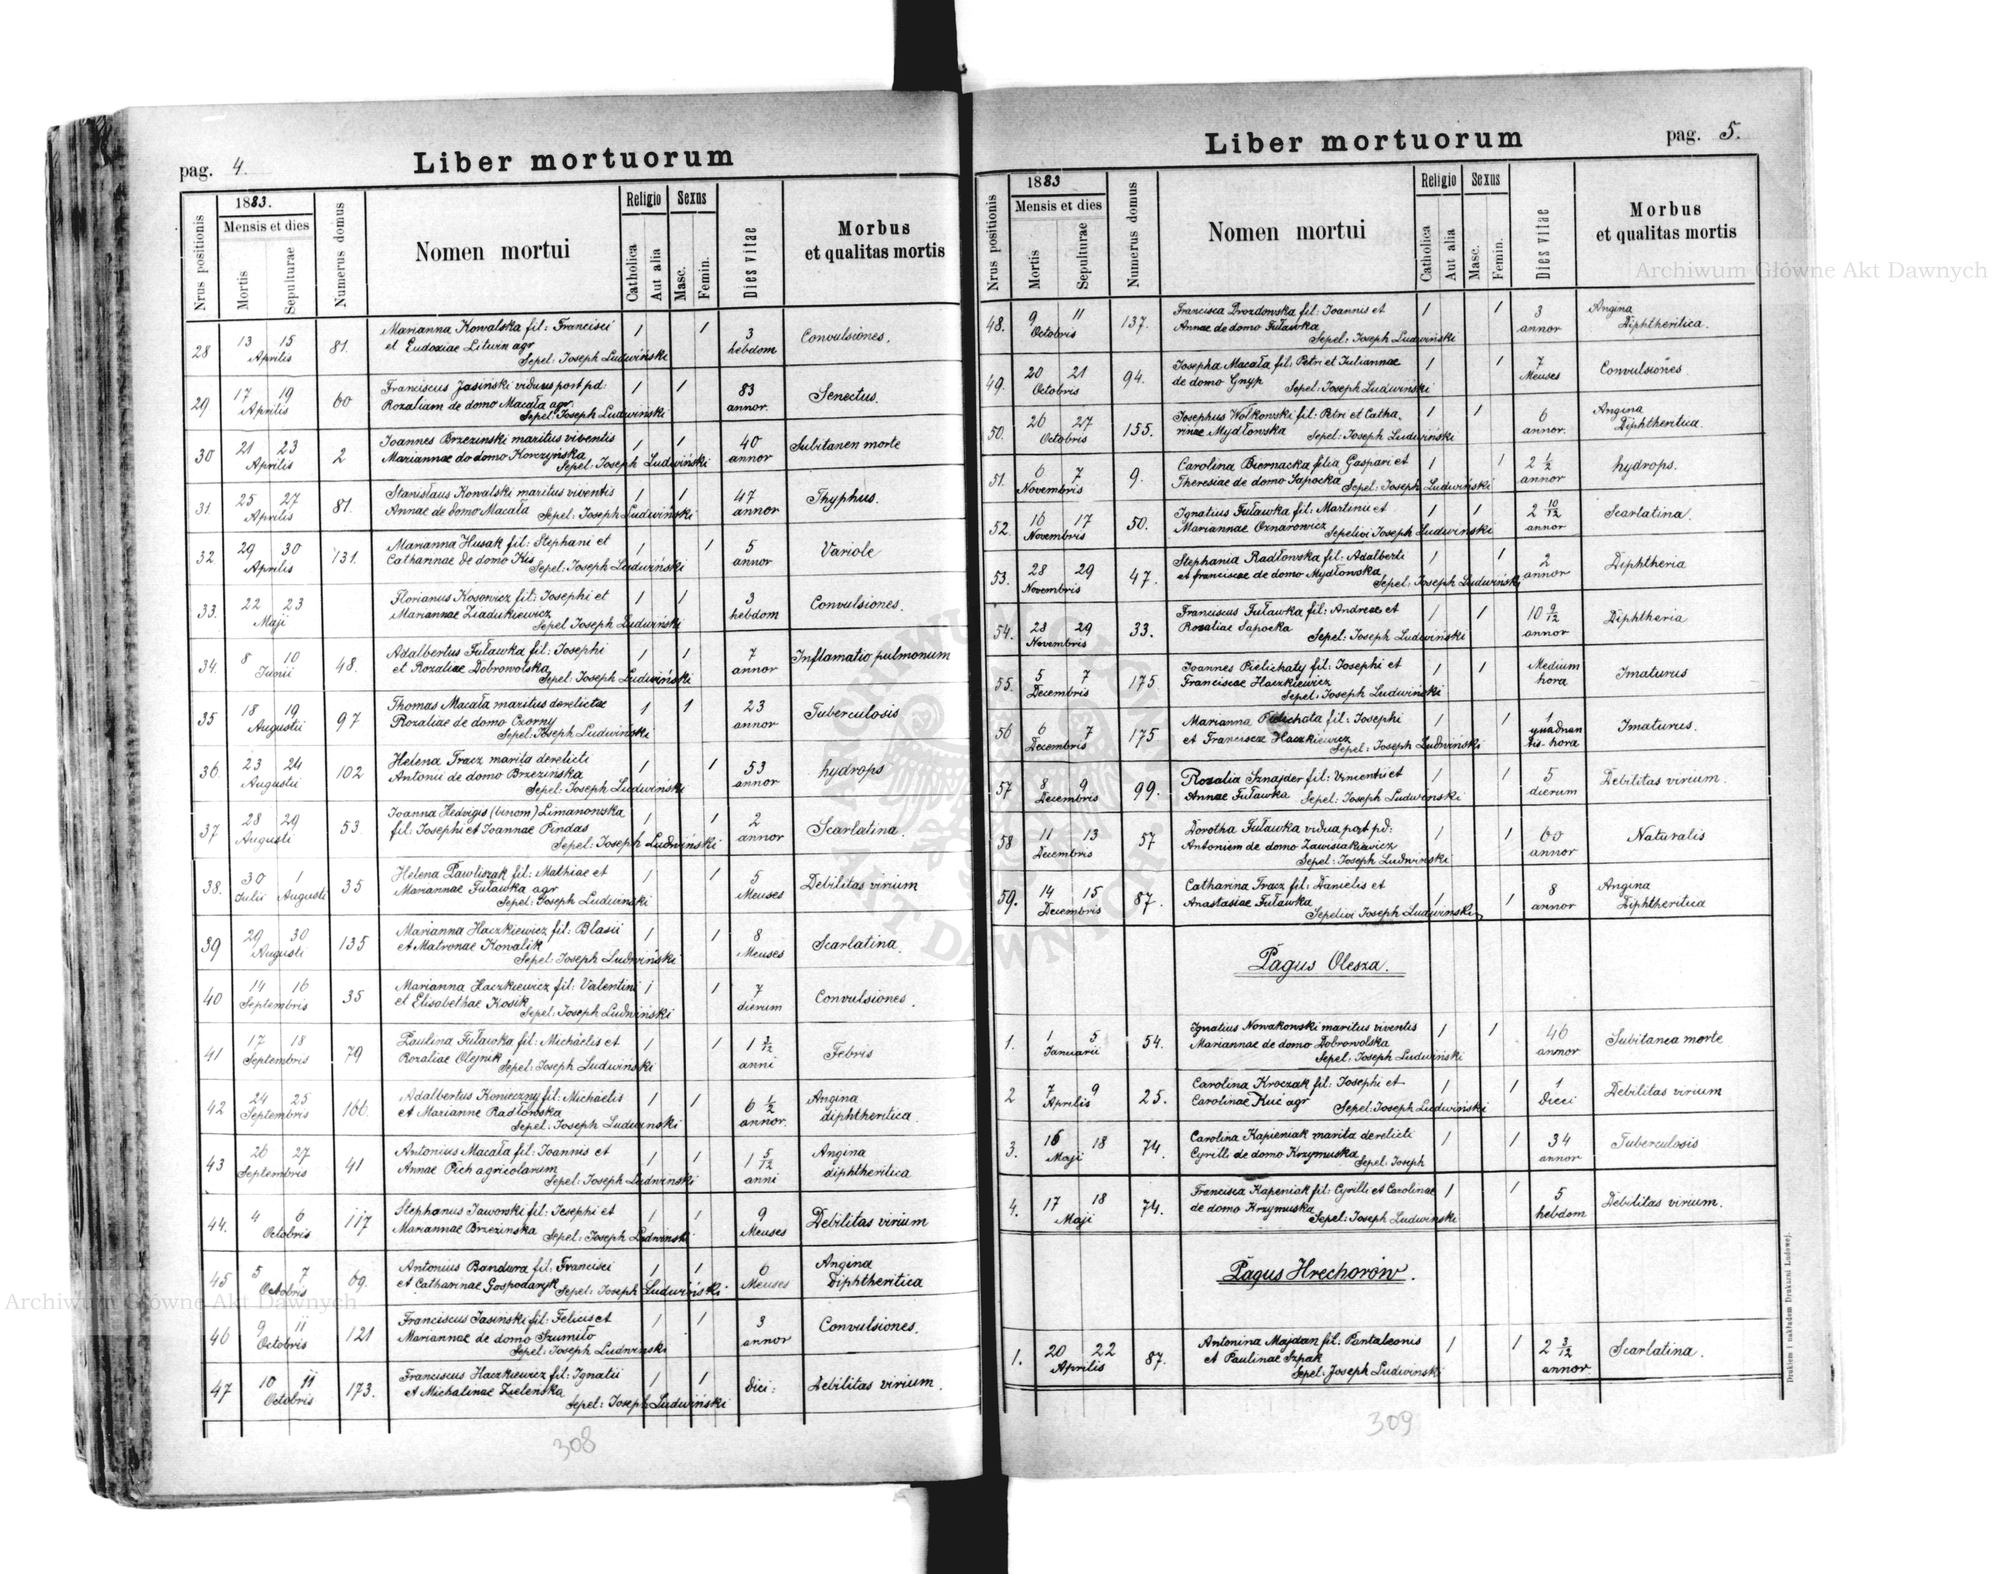 pag. 4.
Liber mortuorum
Nrus positionis
1883.
Mensis et dies
Mortis
Sepulturae
Numerus domus
Nomen mortui
Religio
Catholica
Aut alia
Sexus
Masc.
Femin.
Dies vitae
Morbus
et qualitas mortis
28 13 15 Aprilis 81. Marianna Kowalska fil: Francisci 1 1 3 hebdom Convulsiones.
et Eudoxiae Litwin agr
Sepel: Joseph Ludwiński
29 17 19 Aprilis 60 Franciscus Jasiński viduus post pd: 1 1 83 annor. Senectus.
Rozaliam de domo Macała agr.
Sepel: Joseph Ludwiński
30 21 23 Aprilis 2 Joannes Brzezinski maritus viventis 1 1 40 annor Subitanen morte
Mariannae do domo Korczyńska
Sepel: Joseph Ludwiński
31 25 27 Aprilis 81. Stanisłaus Kowalski maritus viventis 1 1 47 annor Thyphus.
Annae de domo Macała Sepel: Joseph Ludwiński
32 29 30 Aprilis 131. Marianna Husak fil: Stephani et 1 1 5 annor Variole
Catharinae de domo Kis
Sepel: Joseph Ludwiński
33. 22 23 Maji Florianus Kosowicz fil: Josephi et 1 1 3 hebdom Convulsiones.
Mariannae Ziadukiewicz
Sepel Joseph Ludwiński
34. 8 10 Junii 48. Adalbertus Fuławka fil: Josephi 1 1 7 annor Inflamatio pulmonum
et Rozaliae Dobrowolska
Sepel: Joseph Ludwiński
35 18 19 Augustii 97 Thomas Macała maritus derelictae 1 1 23 annor Tuberculosis
Rozaliae de domo Czorny
Sepel: Joseph Ludwiński
36. 23 24 Augustii 102 Helena Tracz marita derelicti 1 1 53 annor hydrops
Antonii de domo Brzezinska
Sepel: Joseph Ludwiński
37 28 29 Augusti 53 Joanna Hedvigis (binom) Limanowska 1 1 2 annor Scarlatina.
fil: Josephi et Joannae Pindas
Sepel: Joseph Ludwiński
38. 30 Julii 1 Augusti 35 Helena Pawliszak fil: Mathiae et 1 1 5 Meuses Debilitas virium
Mariannae Fuławka agr
Sepel: Joseph Ludwiński
39 29 30 Augusti 135 Marianna Haczkiewicz fil: Blasii 1 1 8 Meuses Scarlatina.
et Matronae Kowalik
Sepel: Joseph Ludwiński
40 14 16 Septembris 35 Marianna Haczkiewicz fil: Valentini 1 1 7 dierum Convulsiones.
et Elisabethae Kosik
Sepel: Joseph Ludwiński
41 17 18 Septembris 79 Paulina Fuławka fil: Michaelis et 1 1 1 3/12 anni Febris
Rozaliae Olejnik
Sepel: Joseph Ludwiński
42 24 25 Septembris 166. Adalbertus Konieczny fil: Michaelis 1 1 6 1/2 annor. Angina diphtheritica.
et Marianne Radłowska
Sepel: Joseph Ludwinski
43 26 27 Septembris 41 Antonius Macała fil: Joannis et 1 1 1 5/12 anni Angina diphtheritica
Annae Pich agricolarum
Sepel: Joseph Ludwinski
44. 4 6 Octobris 117 Stephanus Jaworski fil: Josephi et 1 1 9 Meuses Debilitas virium
Mariannae Brzezinska Sepel: Joseph Ludwinski
45 5 7 Octobris 69. Antonius Bandura fil: Francisci 1 1 6 Meuses Angina Diphtheritica
et Catharinae Gospodaryk Sepel: Joseph Ludwinski
46 9 11 Octobris 121 Franciscus Jasinski fil: Felicis et 1 1 3 annor Convulsiones.
Mariannae de domo Szumiło
Sepel: Joseph Ludwinski
47 10 11 Octobris 173. Franciscus Haczkiewicz fil: Ignatii 1 1 dici: Debilitas virium.
et Michalinae Zielenska
Sepel: Joseph Ludwiński
308
pag. 5.
Liber mortuorum
Nrus positionis
1883
Mensis et dies
Mortis
Sepulturae
Numerus domus
Nomen mortui
Religio
Catholica
Aut alia
Sexus
Masc.
Femin.
Dies vitae
Morbus
et qualitas mortis
48. 9 11 Octobris 137. Francisca Drozdowska fil: Joannis et 1 1 3 annor Angina Diphtheritica.
Annae de domo Fuławka
Sepel: Joseph Ludwiński
49. 20 21 Octobris 94. Josepha Macała fil: Petri et Juliannae 1 1 7 Meuses Convulsiones
de domo Gnyp Sepel: Joseph Ludwiński
50. 26 27 Octobris 155. Josephus Wołkowski fil: Petri et Catha- 1 1 6 annor. Angina Diphtheritica.
rinae Mydłowska Sepel: Joseph Ludwiński
51. 6 7 Novembris 9. Carolina Biernacka filia Gaspari et 1 1 2 1/2 annor hydrops.
Theresiae de domo Sapocka Sepel: Joseph Ludwiński
52. 16 17 Novembris 50. Ignatius Fuławka fil: Martini et 1 1 2 10/12 annor Scarlatina.
Mariannae Oznarowicz Sepelivi Joseph Ludwiński
53. 28 29 Novembris 47. Stephania Radłowska fil: Adalberti 1 1 2 annor Diphtheria
et franciscae de domo Mydłowska
Sepel: Joseph Ludwiński
54. 28 29 Novembris 33. Franciscus Fuławka fil: Andreae et 1 1 10 9/12 annor Diphtheria
Rozaliae Sapocka Sepel: Joseph Ludwiński
55. 5 7 Decembris 175. Joannes Pielichaty fil: Josephi et 1 1 Medium hora Imaturus
Franciscae Haczkiewicz
Sepel: Joseph Ludwiński
56 6 7 Decembris 175 Marianna Pielichata fil: Josephi 1 1 1 quadran tis- hora Imaturus.
et Franciscae Haczkiewicz
Sepel: Joseph Ludwiński
57 8 9 Decembris 99. Rozalia Sznajder fil: Vincentii et 1 1 5 dierum Debilitas virium.
Annae Fuławka Sepel: Joseph Ludwinski
58 11 13 Decembris 57 Dorotha Fuławka vidua post pd: 1 1 60 annor Naturalis
Antoniem de domo Zawisiakiewicz
Sepel: Joseph Ludwinski
59. 14 15 Decembris 87. Catharina Tracz fil: Danielis et 1 1 8 annor Angina Diphtheritica
Anastasiae Fuławka
Sepelivi Joseph Ludwinski
Pagus Olesza.
1. 1 5 Januarii 54. Ignatius Nowakowski maritus viventis 1 1 46 annor Subitanea morte
Mariannae de domo Dobrowolska
Sepel: Joseph Ludwinski
2 7 9 Aprilis 25. Carolina Kroczak fil: Josephi et 1 1 1 Dieci Debilitas virium
Carolinae Kuc agr Sepel: Joseph Ludwinski
3. 16 18 Maji 74. Carolina Kapieniak marita derelicti 1 1 34 annor Tuberculosis
Cyrilli de domo Krzymuska
Sepel: Joseph
4. 17 18 Maji 74. Francisca Kapeniak fil: Cyrilli et Carolinae 1 1 5 hebdom Debilitas virium.
de domo Krzymuska
Sepel: Joseph Ludwinski
Pagus Hrechorów.
1. 20 22 Aprilis 87. Antonina Majdan fil: Pantaleonis 1 1 2 3/12 annor Scarlatina.
et Paulinae Szpak
Sepel: Joseph Ludwinski
309
Drukiem i nakładem Drukarni Ludowej.
Archiwum Główne Akt Dawnych
Archiwum Główne Akt Dawnych
ARCHIWUM GŁÓWNE AKT DAWNYCH